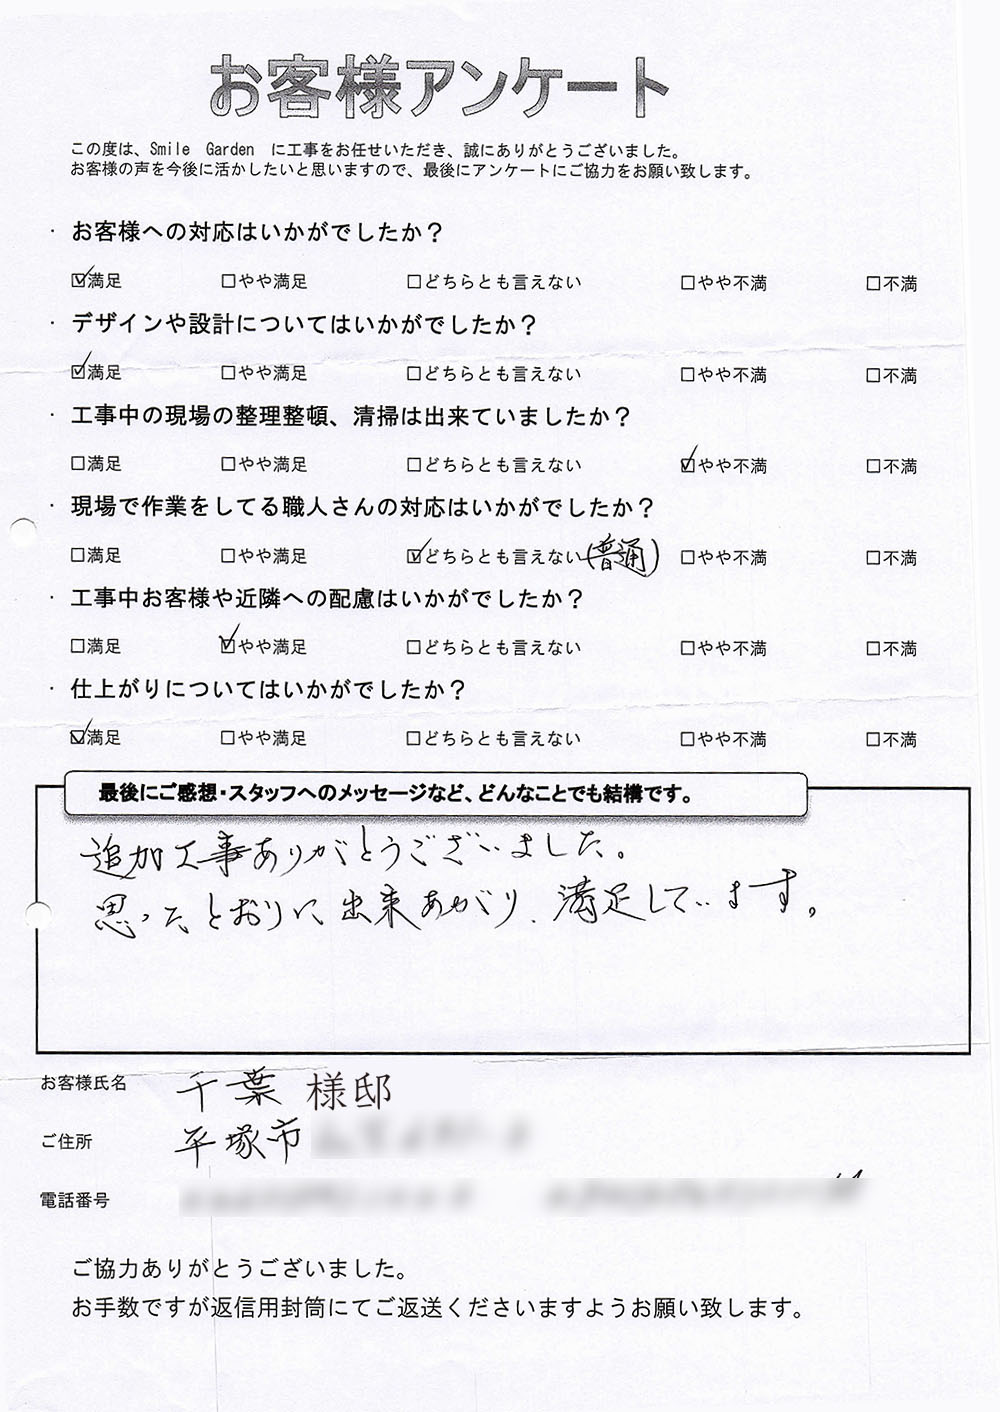 お客様アンケート
この度は、Smile Garden に工事をお任せいただき、誠にありがとうございました。
お客様の声を今後に活かしたいと思いますので、最後にアンケートにご協力をお願い致します。
・ お客様への対応はいかがでしたか？
☑満足 □やや満足 □どちらとも言えない □やや不満 □不満
・ デザインや設計についてはいかがでしたか？
☑満足 □やや満足 □どちらとも言えない □やや不満 □不満
・ 工事中の現場の整理整頓、清掃は出来ていましたか？
□満足 □やや満足 □どちらとも言えない ☑やや不満 □不満
・ 現場で作業をしてる職人さんの対応はいかがでしたか？
□満足 □やや満足 ☑どちらとも言えない(普通) □やや不満 □不満
・ 工事中お客様や近隣への配慮はいかがでしたか？
□満足 ☑やや満足 □どちらとも言えない □やや不満 □不満
・ 仕上がりについてはいかがでしたか？
☑満足 □やや満足 □どちらとも言えない □やや不満 □不満
最後にご感想・スタッフへのメッセージなど、どんなことでも結構です。
追加工事ありがとうございました。
思ったとおりに出来あがり、満足しています。
お客様氏名 千葉 様邸
ご住所 平塚市
電話番号
ご協力ありがとうございました。
お手数ですが返信用封筒にてご返送くださいますようお願い致します。